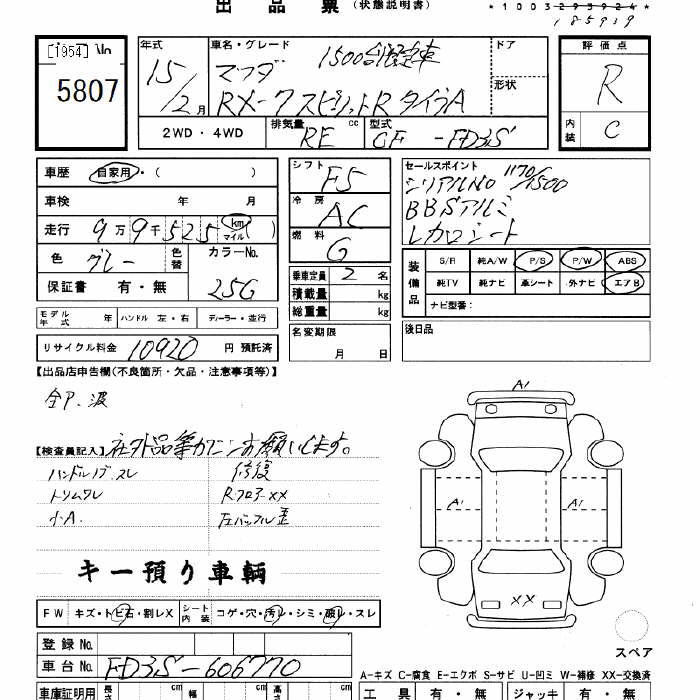 出品票 (状態説明書)
*1003293924*
185919
[1954] No
5807
年式 15/2月
車名・グレード 1500台限定車
マツダ
RX-7 スピリットR タイプA
ドア
形状
2WD・4WD 排気量 RE cc 型式 GF - FD3S
評価点 R
内装 C
車歴 自家用・( )
車検 年 月
走行 9万9千525 km マイル
色 グレー 色替 カラーNo. 25G
保証書 有・無
シフト F5
冷房 AC
燃料 G
乗車定員 2名
積載量 kg
総重量 kg
名変期限
月 日
セールスポイント
シリアルNO 1170/1500
BBSアルミ
レカロシート
装備品 S/R 純A/W P/S P/W ABS
純TV 純ナビ 革シート 外ナビ エアB
ナビ型番:
後日品
モデル年式 年 ハンドル 左・右 ディーラー・並行
リサイクル料金 10920 円 預託済
【出品店申告欄(不良箇所・欠品・注意事項等)】
全P.波
【検査員記入】社外品等カクニンお願いします。
ハンドルノブスレ 修復
トリムワレ RフロアーXX
小A.
キー預り車輌
FW キズ・トビ石・割レX シート内装 コゲ・穴・汚レ・シミ・破レ・スレ
登録No.
車台No. FD3S-606770
車庫証明用 長さ cm 幅 cm 高さ cm
A1
A1 A1
XX
スペア
A-キズ C-腐食 E-エクボ S-サビ U-凹ミ W-補修 XX-交換済
工具 有・無 ジャッキ 有・無